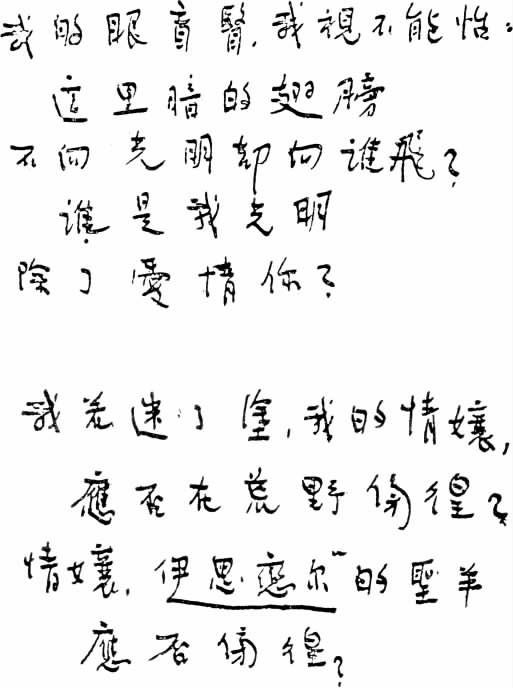 我的眼盲,我視不能怡:
這里暗的翅膀
不向光明却向誰飛?
誰是我光明
除了愛情你?
我若迷了塗,我的情孃,
應否在荒野傍徨?
情孃,伊思戀尔的聖羊
應否傍徨?